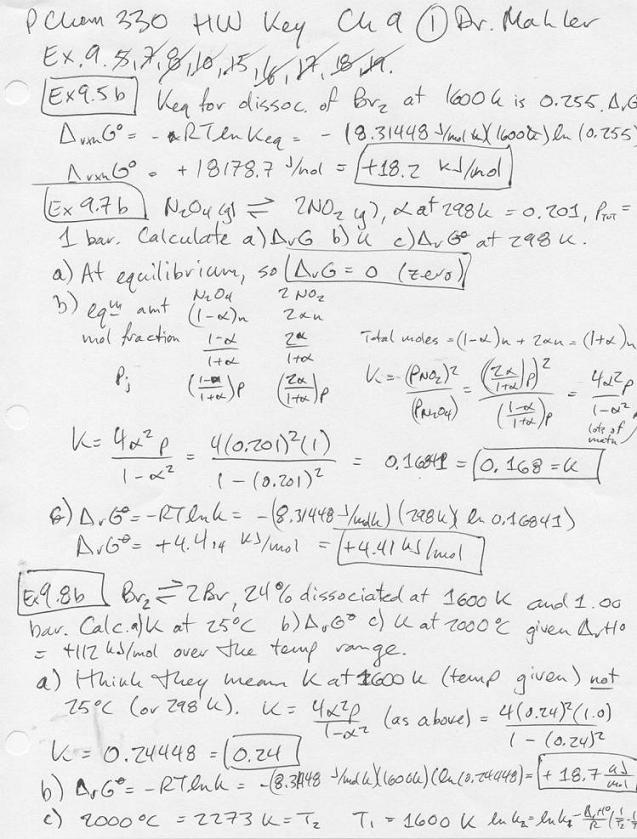 PChem 330 HW Key Ch 9 ① Dr. Mahler
Ex. 9. 5, 7, 8, 10, 15, 16, 17, 18, 19.
Ex 9.5b Keq for dissoc. of Br₂ at 1600 K is 0.255. ΔrG
ΔrxnG° = -RT ln Keq = - (8.31448 J/mol K)(1600K) ln (0.255)
ΔrxnG° = +18178.7 J/mol = +18.2 kJ/mol
Ex 9.7b N₂O₄(g) ⇌ 2NO₂(g), α at 298K = 0.201, PTOT =
1 bar. Calculate a) ΔrG b) K c) ΔrG° at 298 K.
a) At equilibrium, so ΔrG = 0 (zero)
N₂O₄ 2 NO₂
b) eqᵐ amt (1-α)n 2αn
mol fraction (1-α)/(1+α) 2α/(1+α) Total moles = (1-α)n + 2αn = (1+α)n
Pj ((1-α)/(1+α))p (2α/(1+α))p K = (PNO₂)²/(PN₂O₄) = ((2α/(1+α))p)²/((1-α)/(1+α))p = 4α²p/(1-α²)
lots of math
K = 4α²p/(1-α²) = 4(0.201)²(1)/(1-(0.201)²) = 0.16841 = 0.168 = K
c) ΔrG° = -RT ln K = -(8.31448 J/molK)(298K)(ln 0.16841)
ΔrG° = +4.414 kJ/mol = +4.41 kJ/mol
Ex 9.8b Br₂ ⇌ 2Br, 24% dissociated at 1600 K and 1.00
bar. Calc. a) K at 25°C b) ΔrG° c) K at 2000°C given ΔrH°
= +112 kJ/mol over the temp range.
a) I think they mean K at 1600 K (temp given) not
25°C (or 298 K). K = 4α²p/(1-α²) (as above) = 4(0.24)²(1.0)/(1-(0.24)²)
K = 0.24448 = 0.24
b) ΔrG° = -RT ln K = -(8.31448 J/molK)(1600K)(ln(0.24448)) = +18.7 kJ/mol
c) 2000°C = 2273 K = T₂ T₁ = 1600 K ln K₂ = ln K₁ - ΔrH°/R (1/T₂ - 1/T